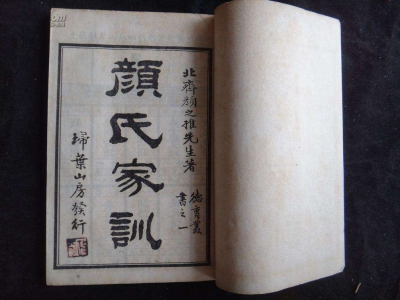 北齊顏之推先生著
德育叢
書之一
顏氏家訓
埽葉山房發行